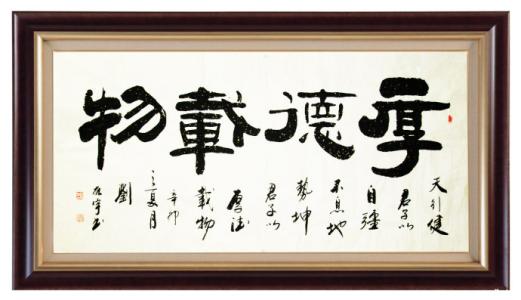 厚德載物
天行健
君子以
自強
不息地
勢坤
君子以
厚德
載物
辛卯
之夏月
劉